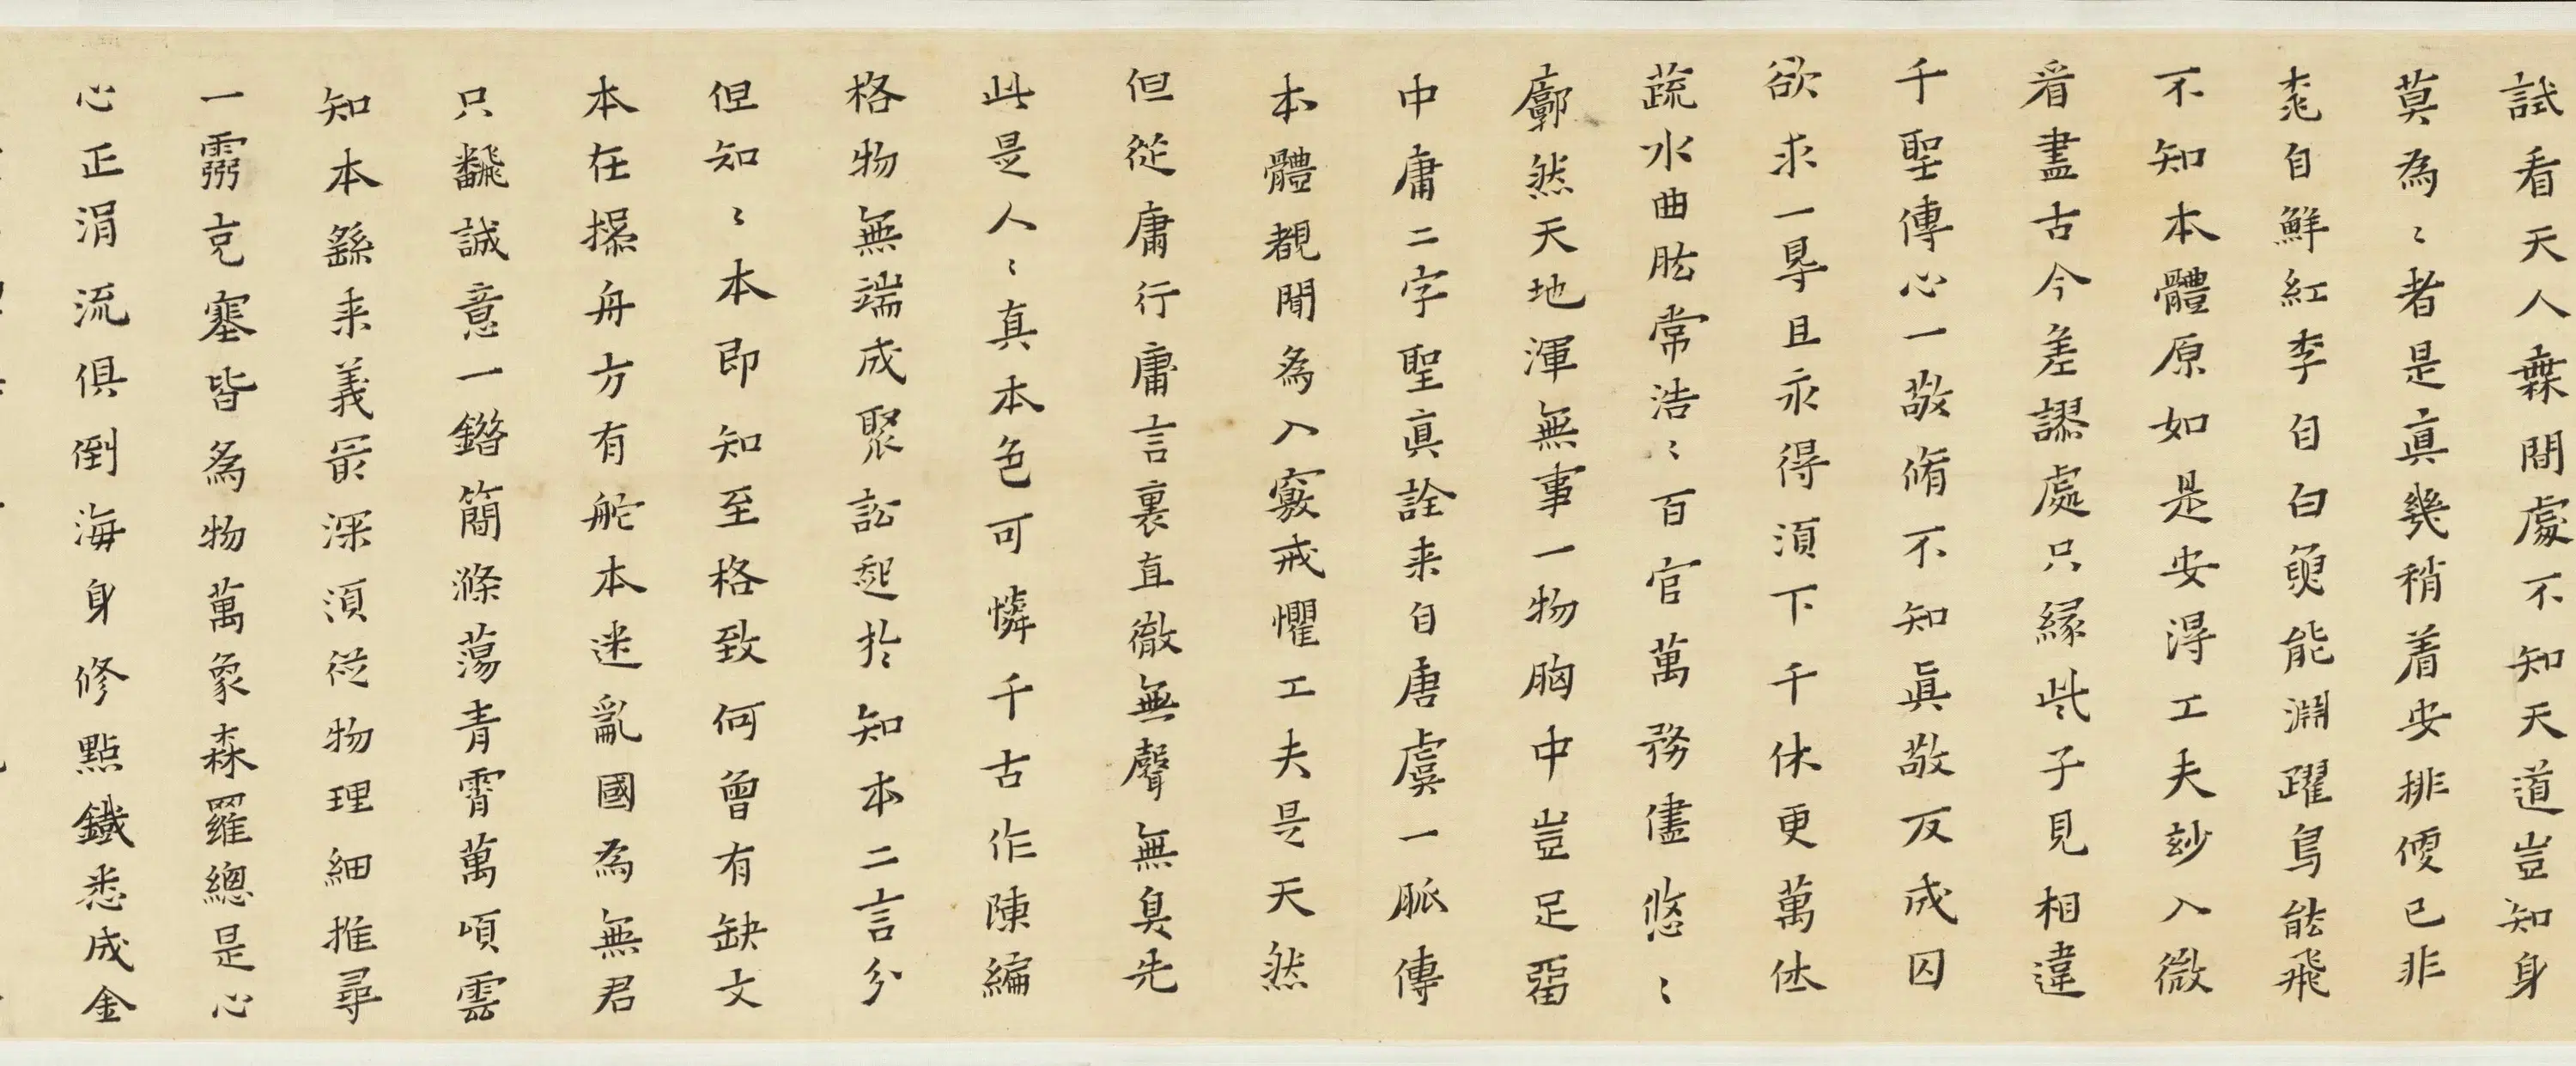 試看天人無間處不知天道豈知身
莫為〻者是眞幾稍着安排便已非
桃自鮮紅李自白魚能淵躍鳥能飛
不知本體原如是安得工夫玅入微
看盡古今差謬處只緣些子見相違
千聖傳心一敬脩不知眞敬反成囚
欲求一尋且永得須下千休更萬休
蔬水曲肱常浩〻百官萬務儘悠〻
廓然天地渾無事一物胸中豈足畱
中庸二字聖眞詮来自唐虞一脈傳
本體覩聞為入竅戒懼工夫是天然
但從庸行庸言裏直徹無聲無臭先
此是人〻真本色可憐千古作陳編
格物無端成聚訟起扵知本二言分
但知〻本即知至格致何曾有缺文
本在操舟方有舵本迷亂國為無君
只飜誠意一鐕簡滌蕩青霄萬頃雲
知本繇来義㝡深須從物理細推尋
一靈克塞皆為物萬象森羅總是心
心正涓流俱倒海身修點鐵悉成金